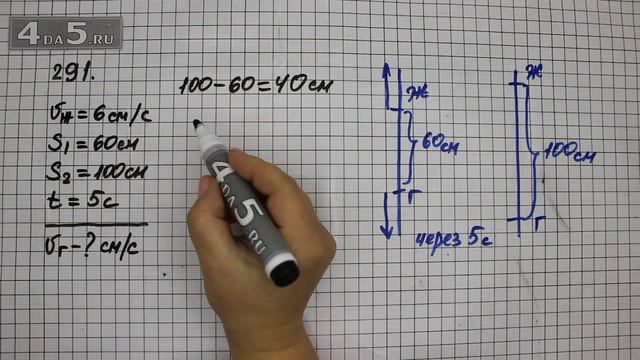 4DA5.RU
291.
Vж = 6 см/с
S₁ = 60см
S₂ = 100см
t = 5с
Vг - ? см/с
100 - 60 = 40см
Ж
60см
Г
через 5с
Ж
100см
Г
4DA5.RU